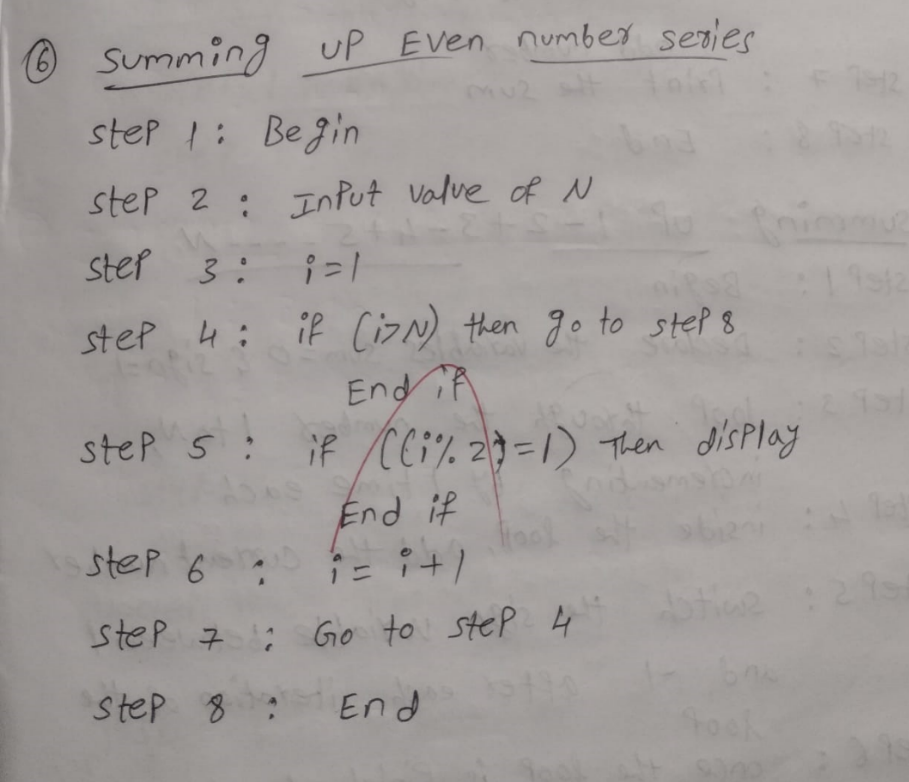 ⑥ Summing up Even number series
Step 1 : Begin
Step 2 : Input value of N
Step 3 : i=1
Step 4 : if (i>N) then go to step 8
End if
Step 5 : if ((i%2)=1) Then display
End if
Step 6 : i = i+1
Step 7 : Go to step 4
Step 8 : End